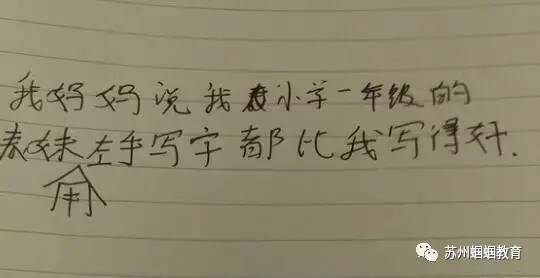 我妈妈说我表小学一年级的
表妹左手写字都比我写得好.
用
苏州蝈蝈教育